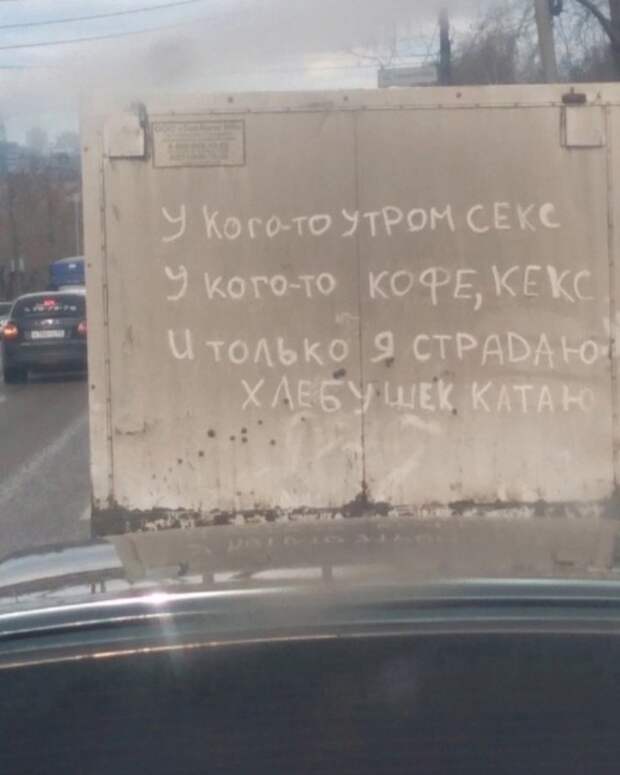 У кого-то УТРОМ СЕКС
У кого-то КОФЕ, КЕКС
И ТОЛЬКО Я СТРАДАЮ
ХЛЕБУШЕК КАТАЮ